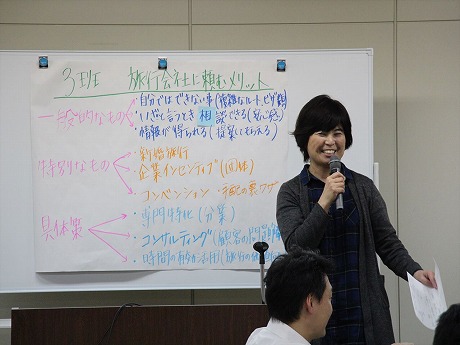 3班 旅行会社に頼むメリット
一般的なもの
・自分ではできない事(複雑なルート、ビザ関
・いざと言うとき相談できる(安心感)
・情報が得られる(提案してもらえる)
特別なもの
・新婚旅行
・企業インセンティブ(団体)
・コンベンション・手配の裏ワザ
具体策
・専門特化(分業)
・コンサルティング(顧客の問題
・時間の有効活用(